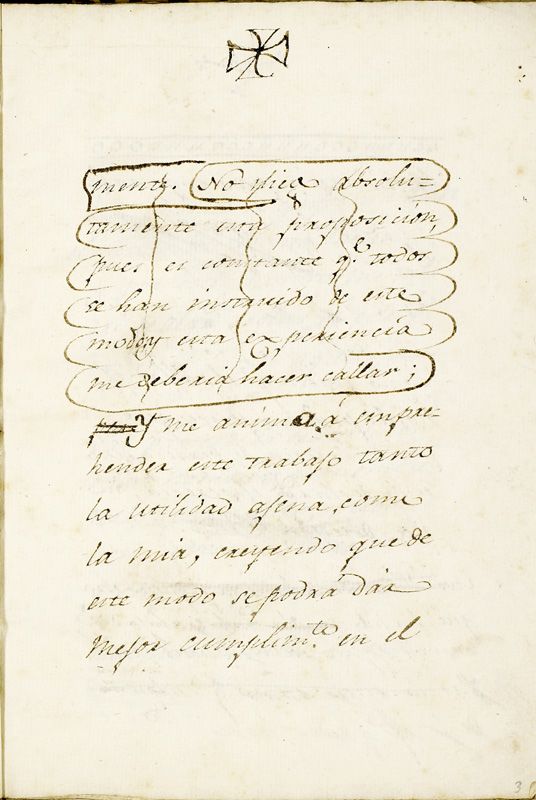 mente. No absolu-
tamente esta proposición,
pues es constante q.e todos
se han instruido de este
modo y esta experiencia
me deberia hacer callar;
Y me anima á empre-
hender este trabajo tanto
la utilidad agena, como
la mia, creyendo que de
este modo se podrá dár
mejor cumplim.to en el
3